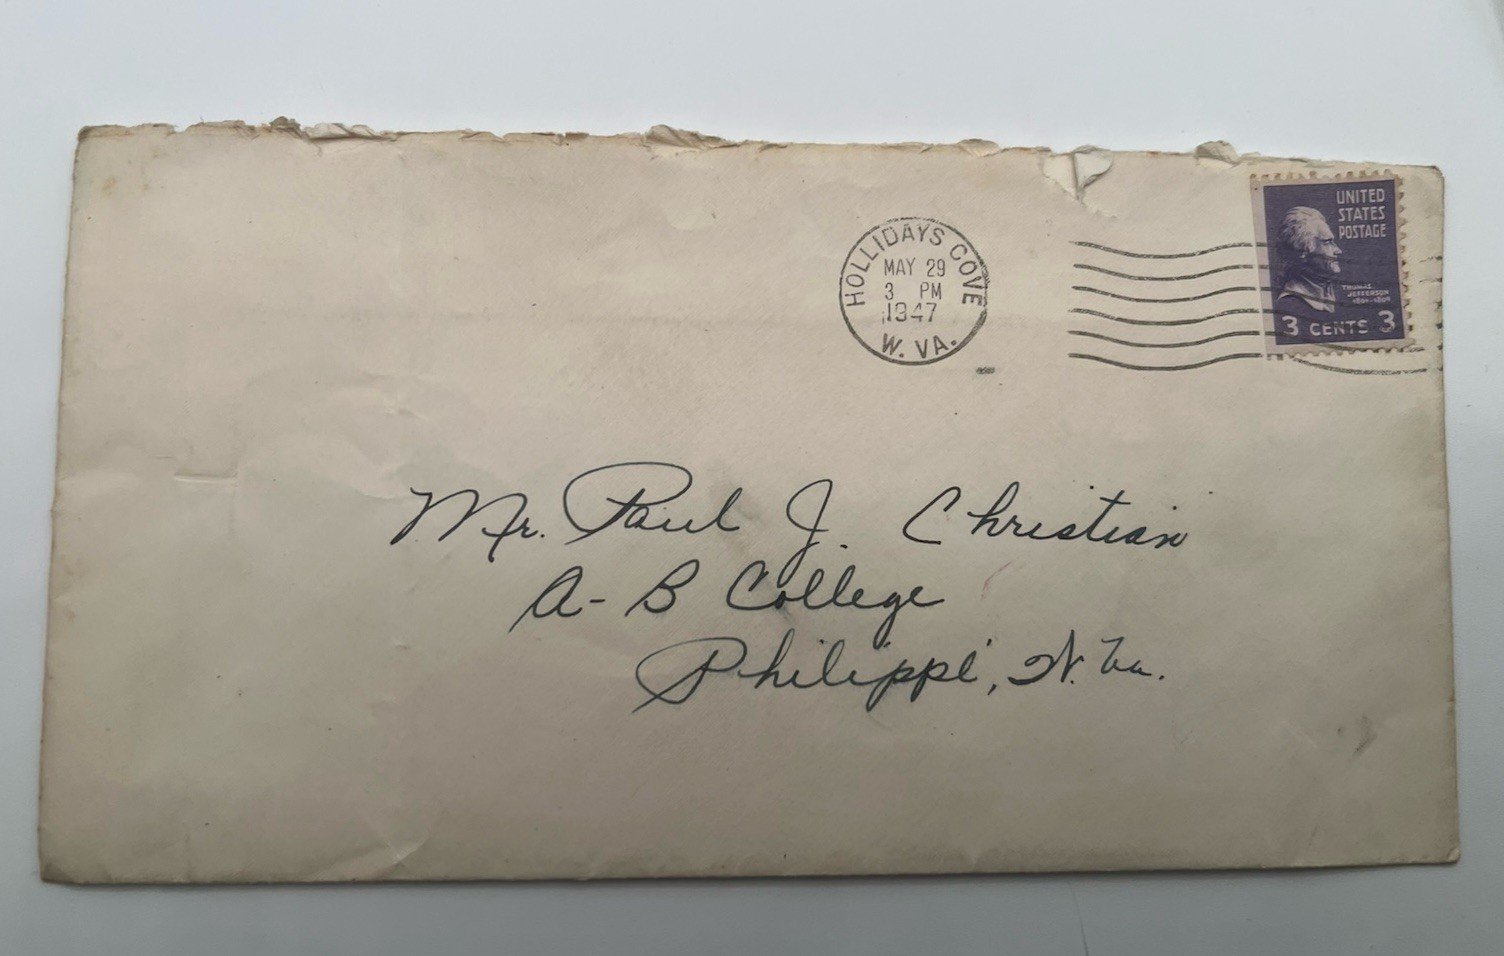 HOLLIDAYS COVE
MAY 29
3 PM
1947
W. VA.
UNITED
STATES
POSTAGE
THOMAS
JEFFERSON
1801-1809
3 CENTS 3
Mr. Paul J. Christian
A-B College
Philippi, W. Va.